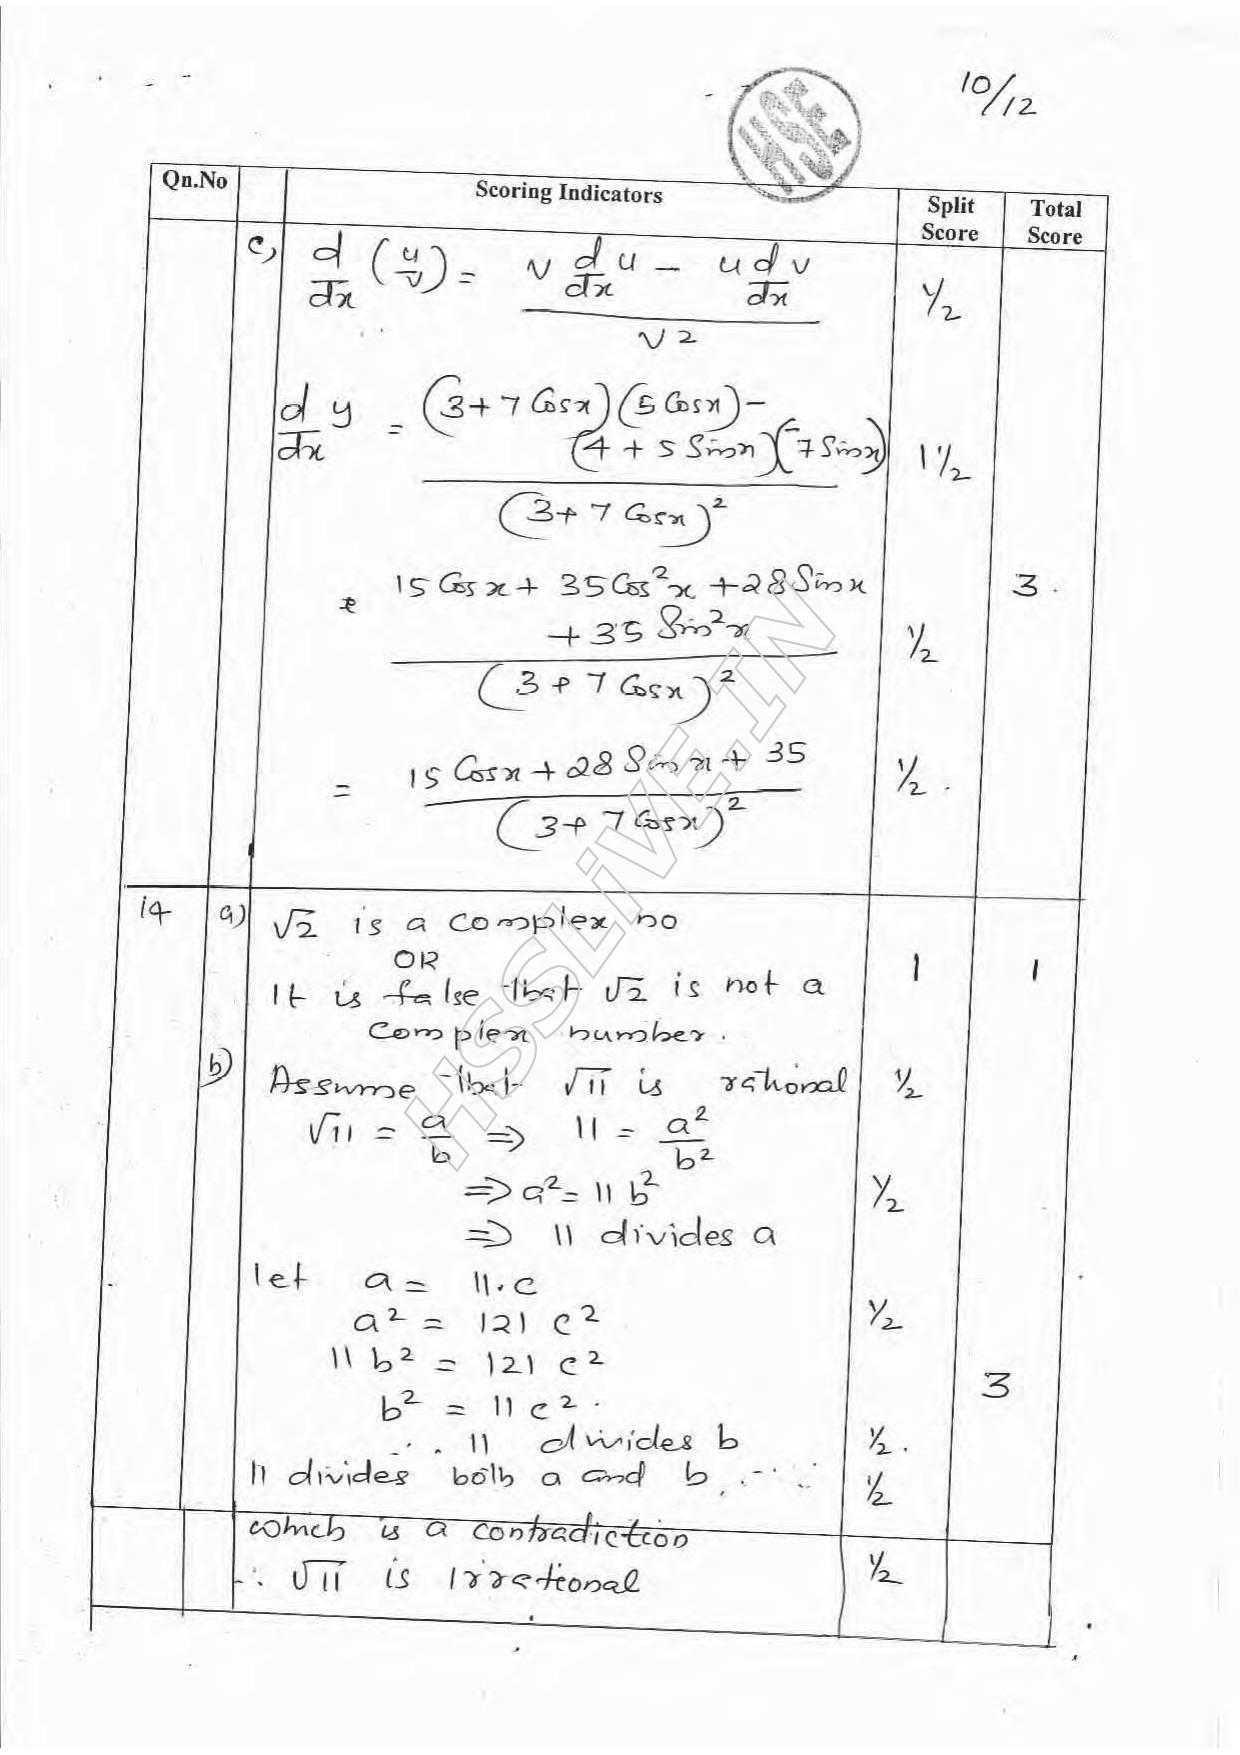 10/12
HSE
Qn.No Scoring Indicators Split Score Total Score
c) d/dx (u/v) = (v d/dx u - u d/dx v) / v2 1/2
d/dx y = (3+7 Cosx)(5 Cosx) -
(4 + 5 Sinx)(-7 Sinx) 1 1/2
(3+7 Cosx)²
15 Cosx + 35Cos²x + 28 Sinx 3.
+ 35 Sin²x 1/2
(3+7 Cosx)²
= 15 Cosx + 28 Sinx + 35 1/2.
(3+7 Cosx)²
14 a) √2 is a complex no
OR 1 1
It is false that √2 is not a
complex number.
b) Assume that √11 is rational 1/2
√11 = a/b ⇒ 11 = a²/b²
⇒ a² = 11 b² 1/2
⇒ 11 divides a
let a = 11.c
a² = 121 c² 1/2
11 b² = 121 c²
b² = 11 c². 3
∴ 11 divides b 1/2.
11 divides both a and b, 1/2
which is a contradiction
∴ √11 is irrational 1/2
HSSLiVE.IN